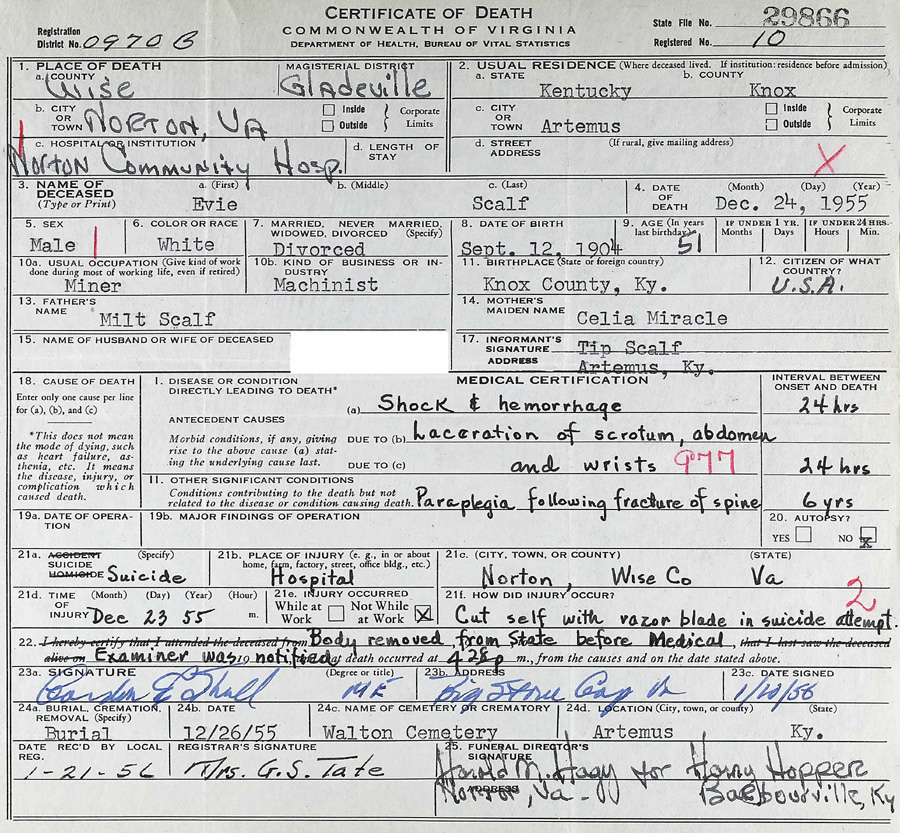 CERTIFICATE OF DEATH
COMMONWEALTH OF VIRGINIA
DEPARTMENT OF HEALTH, BUREAU OF VITAL STATISTICS
Registration District No. 0970 B
State File No. 29866
Registered No. 10
1. PLACE OF DEATH
a. COUNTY Wise
MAGISTERIAL DISTRICT Gladeville
b. CITY OR TOWN NORTON, VA
Inside
Outside
Corporate Limits
c. HOSPITAL OR INSTITUTION Norton Community Hosp.
d. LENGTH OF STAY
2. USUAL RESIDENCE (Where deceased lived. If institution: residence before admission)
a. STATE Kentucky
b. COUNTY Knox
c. CITY OR TOWN Artemus
Inside
Outside
Corporate Limits
d. STREET ADDRESS (If rural, give mailing address)
X
3. NAME OF DECEASED (Type or Print)
a. (First) Evie
b. (Middle)
c. (Last) Scalf
4. DATE OF DEATH (Month) (Day) (Year) Dec. 24, 1955
5. SEX Male
6. COLOR OR RACE White
7. MARRIED, NEVER MARRIED, WIDOWED, DIVORCED (Specify) Divorced
8. DATE OF BIRTH Sept. 12, 1904
9. AGE (In years last birthday) 51
IF UNDER 1 YR. Months Days
IF UNDER 24 HRS. Hours Min.
10a. USUAL OCCUPATION (Give kind of work done during most of working life, even if retired) Miner
10b. KIND OF BUSINESS OR INDUSTRY Machinist
11. BIRTHPLACE (State or foreign country) Knox County, Ky.
12. CITIZEN OF WHAT COUNTRY? U.S.A.
13. FATHER'S NAME Milt Scalf
14. MOTHER'S MAIDEN NAME Celia Miracle
15. NAME OF HUSBAND OR WIFE OF DECEASED
17. INFORMANT'S SIGNATURE Tip Scalf
ADDRESS Artemus, Ky.
18. CAUSE OF DEATH
Enter only one cause per line for (a), (b), and (c)
*This does not mean the mode of dying, such as heart failure, asthenia, etc. It means the disease, injury, or complication which caused death.
MEDICAL CERTIFICATION
INTERVAL BETWEEN ONSET AND DEATH
I. DISEASE OR CONDITION DIRECTLY LEADING TO DEATH*
(a) Shock & hemorrhage 24 hrs
ANTECEDENT CAUSES
Morbid conditions, if any, giving rise to the above cause (a) stating the underlying cause last.
DUE TO (b) Laceration of scrotum, abdomen
DUE TO (c) and wrists 977 24 hrs
11. OTHER SIGNIFICANT CONDITIONS
Conditions contributing to the death but not related to the disease or condition causing death. Paraplegia following fracture of spine 6 yrs
19a. DATE OF OPERATION
19b. MAJOR FINDINGS OF OPERATION
20. AUTOPSY?
YES NO X
21a. ACCIDENT SUICIDE HOMICIDE (Specify) Suicide
21b. PLACE OF INJURY (e. g., in or about home, farm, factory, street, office bldg., etc.) Hospital
21c. (CITY, TOWN, OR COUNTY) (STATE) Norton, Wise Co Va
21d. TIME OF INJURY (Month) (Day) (Year) (Hour) Dec 23 55 m.
21e. INJURY OCCURRED While at Work Not While at Work X
21f. HOW DID INJURY OCCUR? 2
Cut self with razor blade in suicide attempt.
22. I hereby certify that I attended the deceased from Body removed from State before Medical, that I last saw the deceased
alive on Examiner was 19 notified at death occurred at 4 28 p m., from the causes and on the date stated above.
23a. SIGNATURE (Degree or title) ME
23b. ADDRESS Big Stone Gap Va
23c. DATE SIGNED 1/10/56
24a. BURIAL, CREMATION, REMOVAL (Specify) Burial
24b. DATE 12/26/55
24c. NAME OF CEMETERY OR CREMATORY Walton Cemetery
24d. LOCATION (City, town, or county) (State) Artemus Ky.
DATE REC'D BY LOCAL REG. 1-21-56
REGISTRAR'S SIGNATURE Mrs. G. S. Tate
25. FUNERAL DIRECTOR'S SIGNATURE Harold M. Hagy for Harry Hopper
ADDRESS Norton, Va - Barbourville, Ky